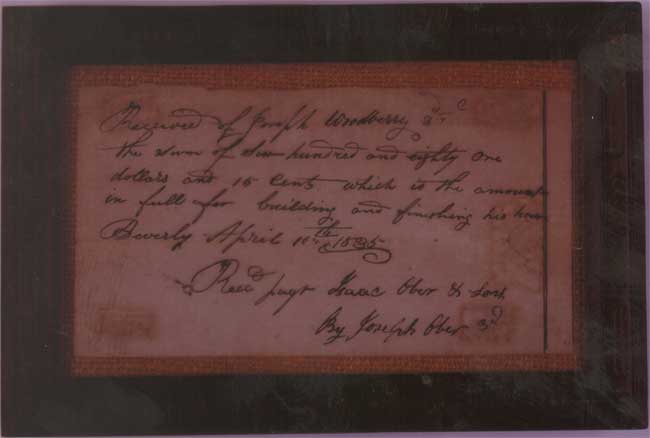 Received of Joseph Woodberry 3d
the sum of Six hundred and eighty One
dollars and 15 Cents which is the amount
in full for building and finishing his house
Beverly April 11th 1835
Recd payt Isaac Ober & Son
By Joseph Ober 3d